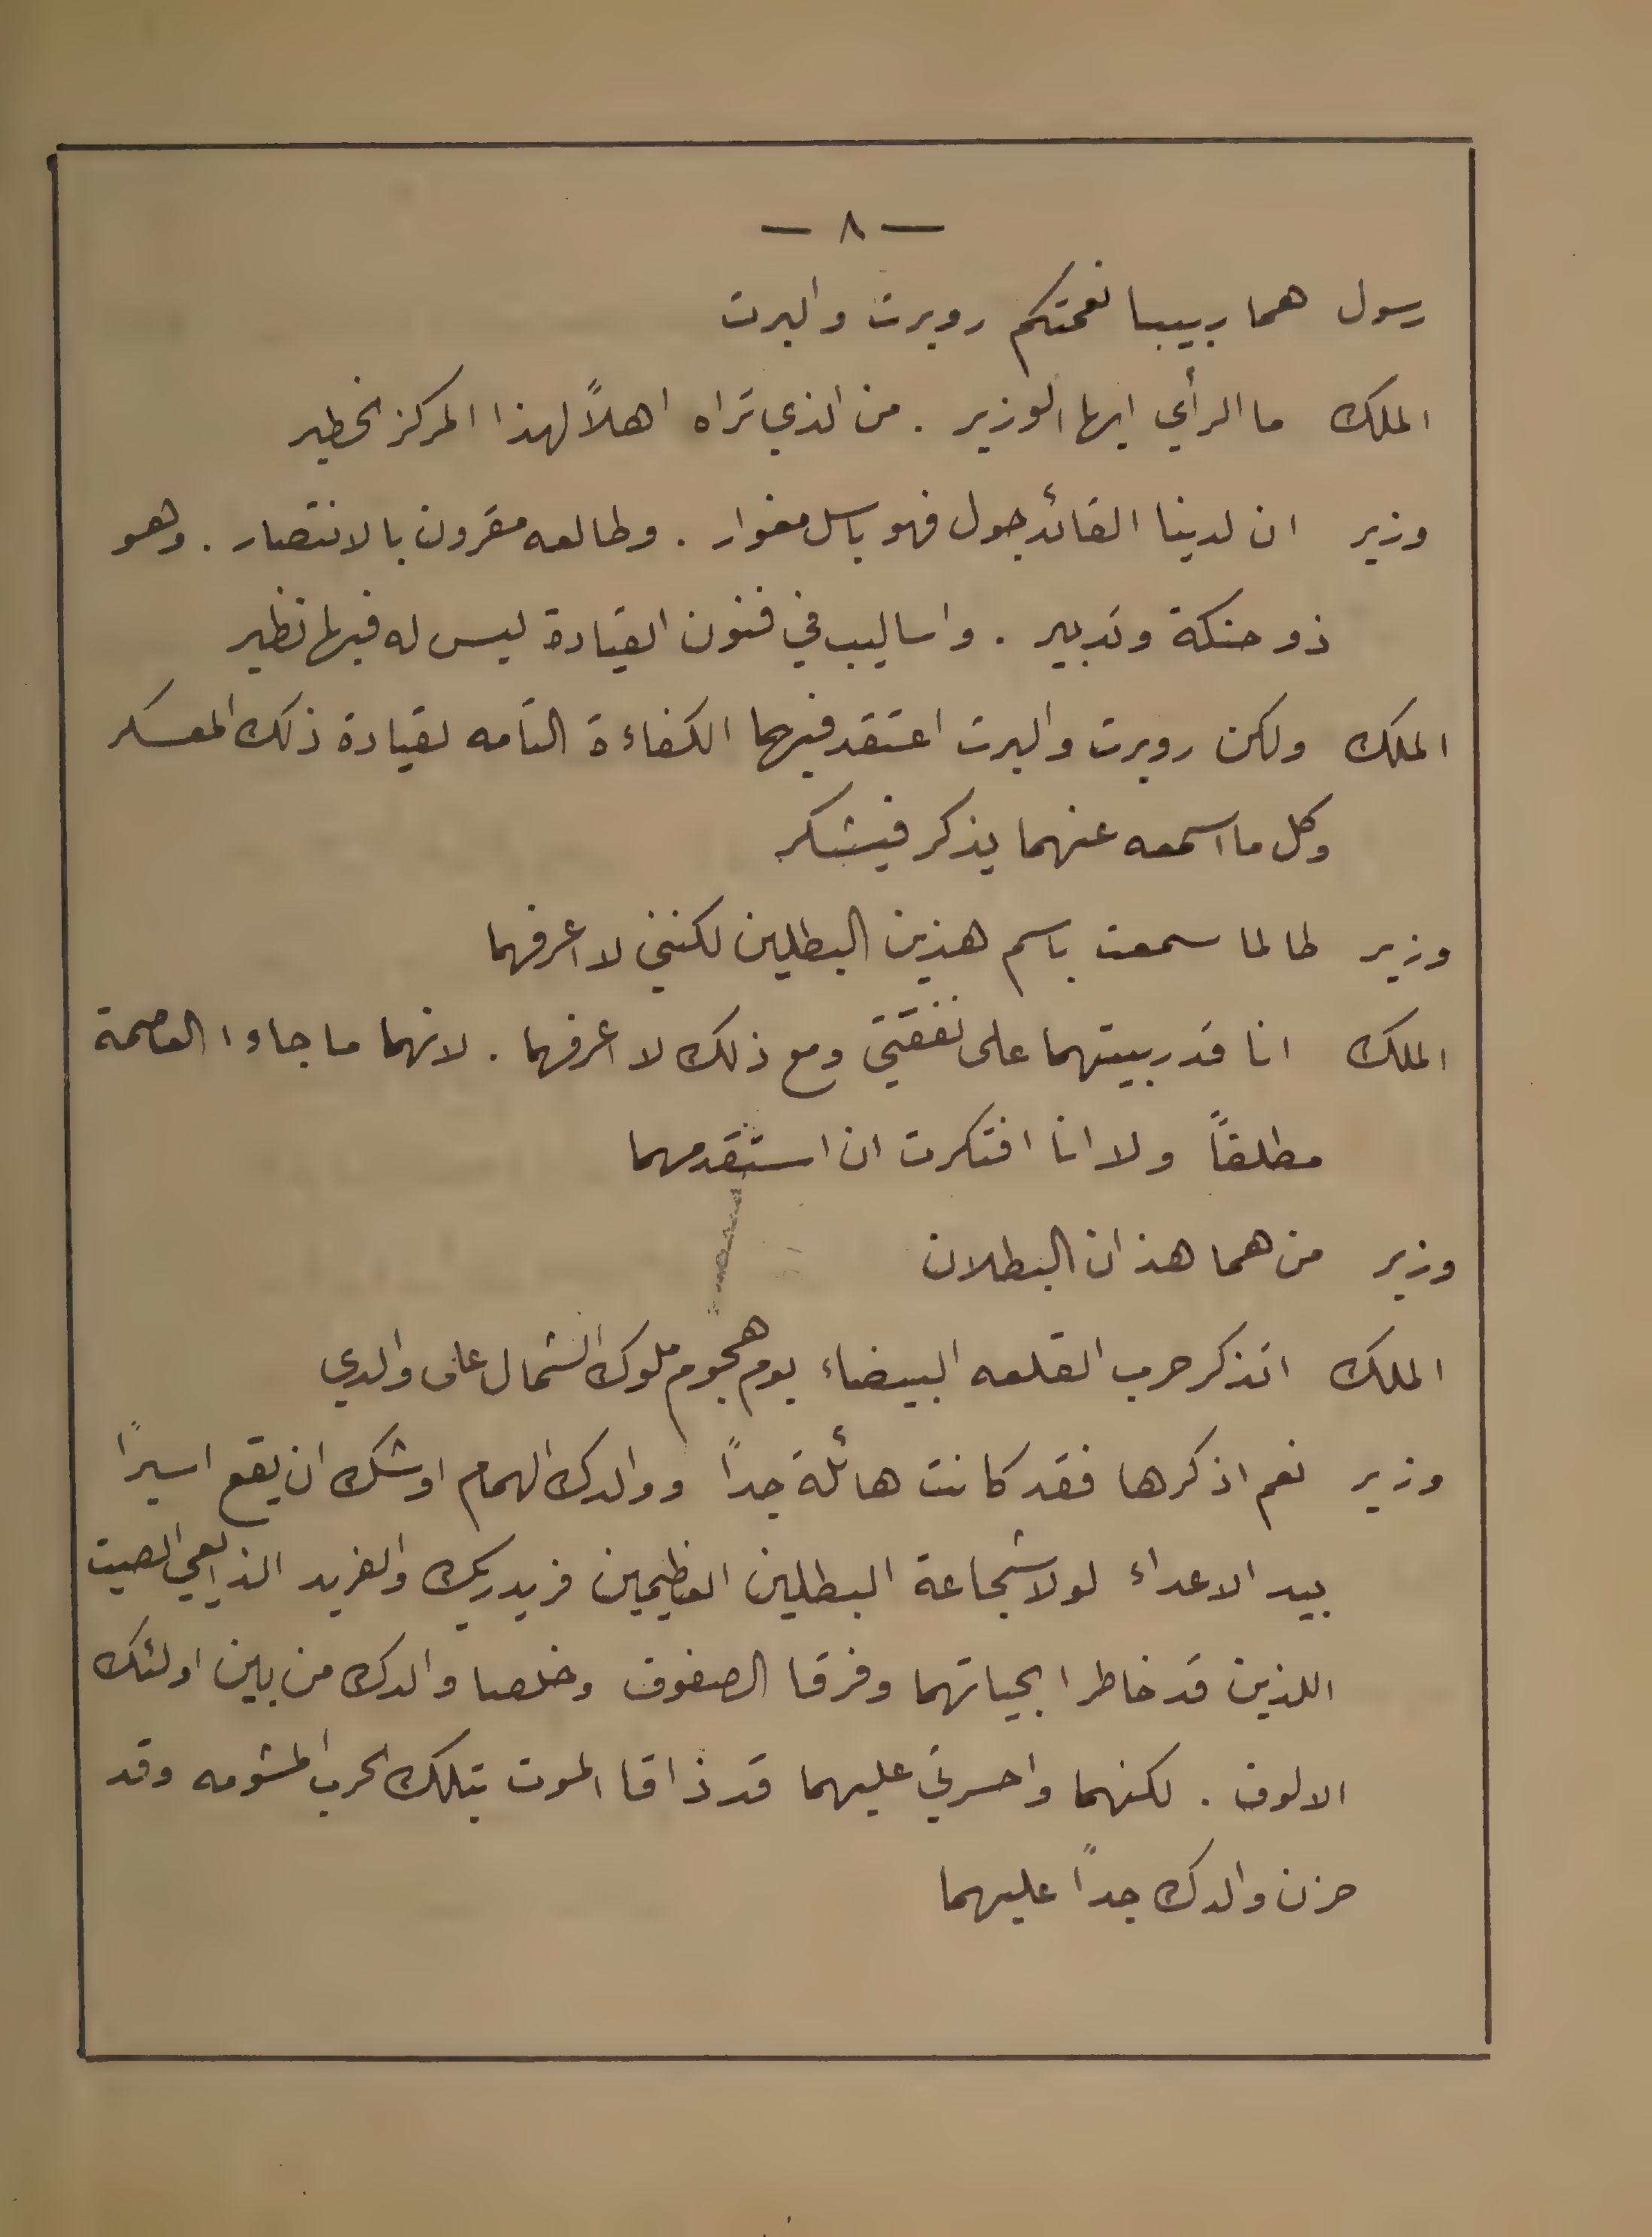 — ٨ —
رسول هما ربيبا نعمتكم روبرت والبرت
الملك ما الرأي ايها الوزير . من الذي تراه اهلاً لهذا المركز الخطير
وزير ان لدينا القائد جول فهو باسل مغوار . وطالعه مقرون بالانتصار . وهو
ذو حنكة وتدبير . واساليب في فنون القيادة ليس له فيها نظير
الملك ولكن روبرت والبرت اعتقد فيهما الكفاءة التامه لقيادة ذلك المعسكر
وكل ما اسمعه عنهما يذكر فيشكر
وزير طالما سمعت باسم هذين البطلين لكنني لا اعرفهما
الملك انا قد ربيتهما على نفقتي ومع ذلك لا اعرفهما . لانهما ما جاءا العاصمة
مطلقاً ولا انا افتكرت ان استقدمهما
وزير من هما هذان البطلان
الملك اتذكر حرب القلعه البيضاء يوم هجوم ملوك الشمال على والدي
وزير نعم اذكرها فقد كانت هائلة جداً ووالدك الهمام اوشك ان يقع اسيرًا
بيد الاعداء لولا شجاعة البطلين العظيمين فريدريك والفريد الذايعي الصيت
اللذين قد خاطرا بحياتهما وفرقا الصفوف وخلصا والدك من بين اولئك
الالوف . لكنهما واحسرتي عليهما قد ذاقا الموت بتلك الحرب المشومه وقد
حزن والدك جداً عليهما